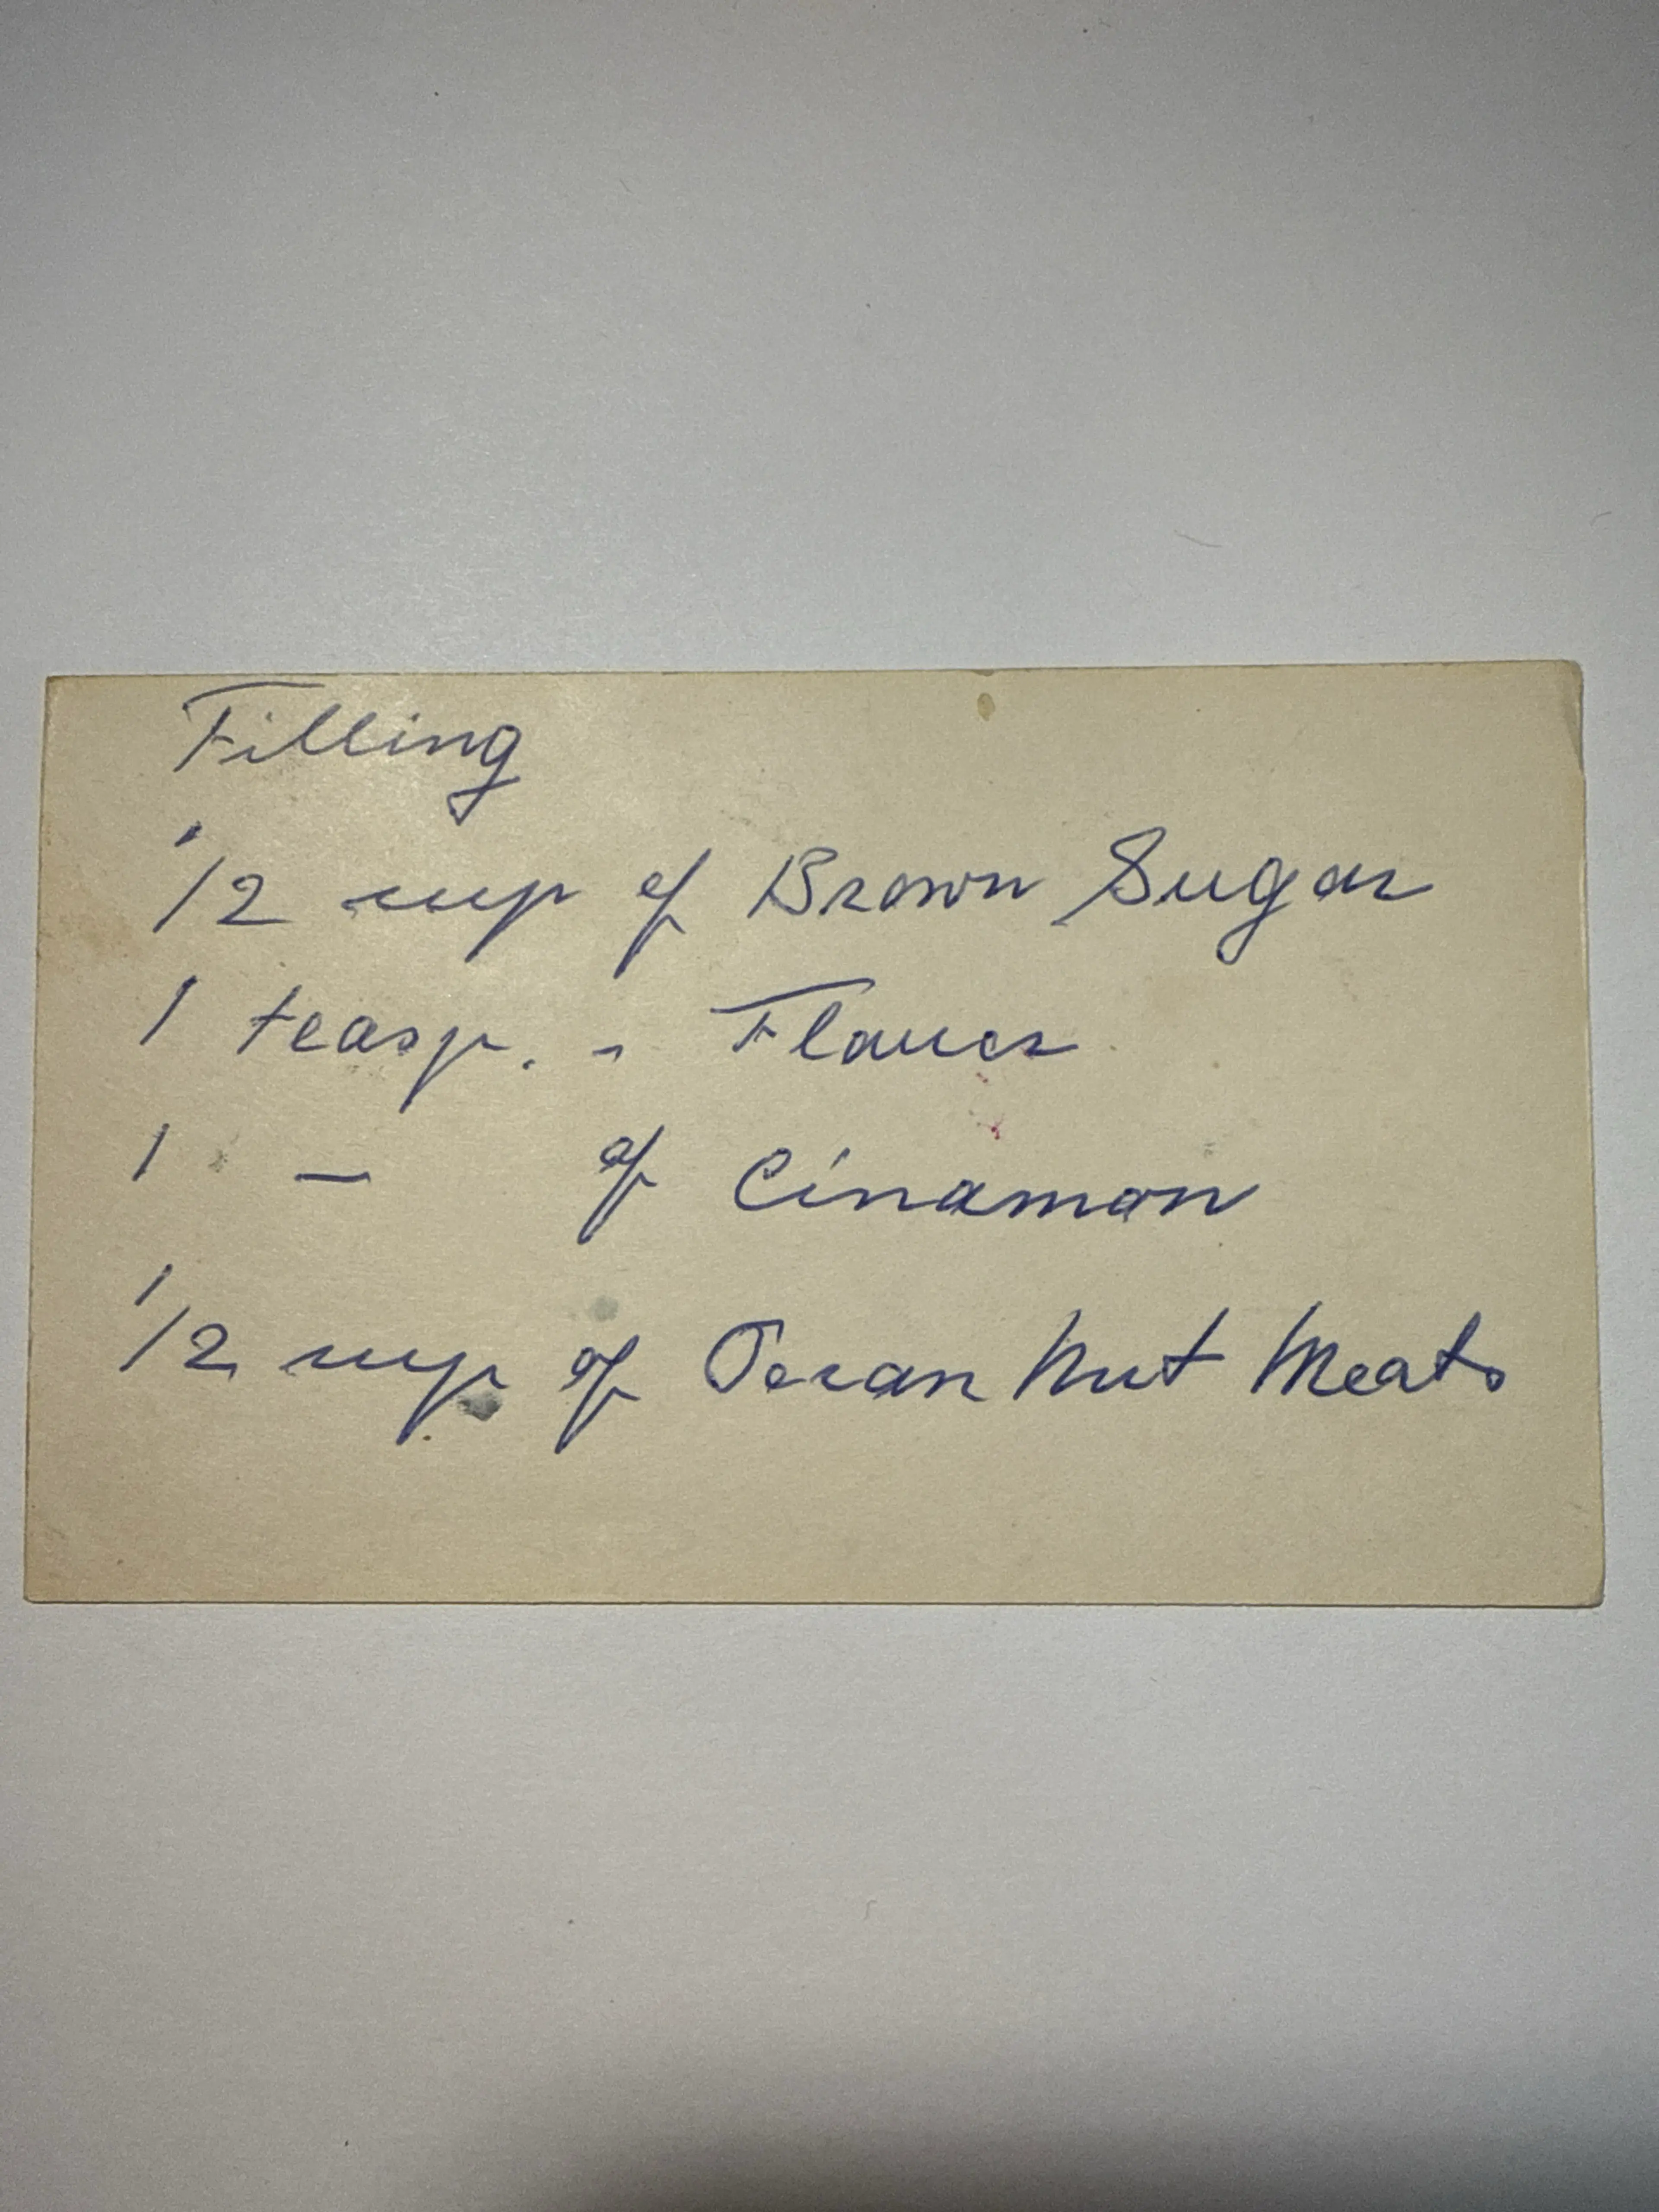 Filling
1/2 cup of Brown Sugar
1 teasp. - Flauer
1 — of Cinamon
1/2 cup of Pecan Nut Meats